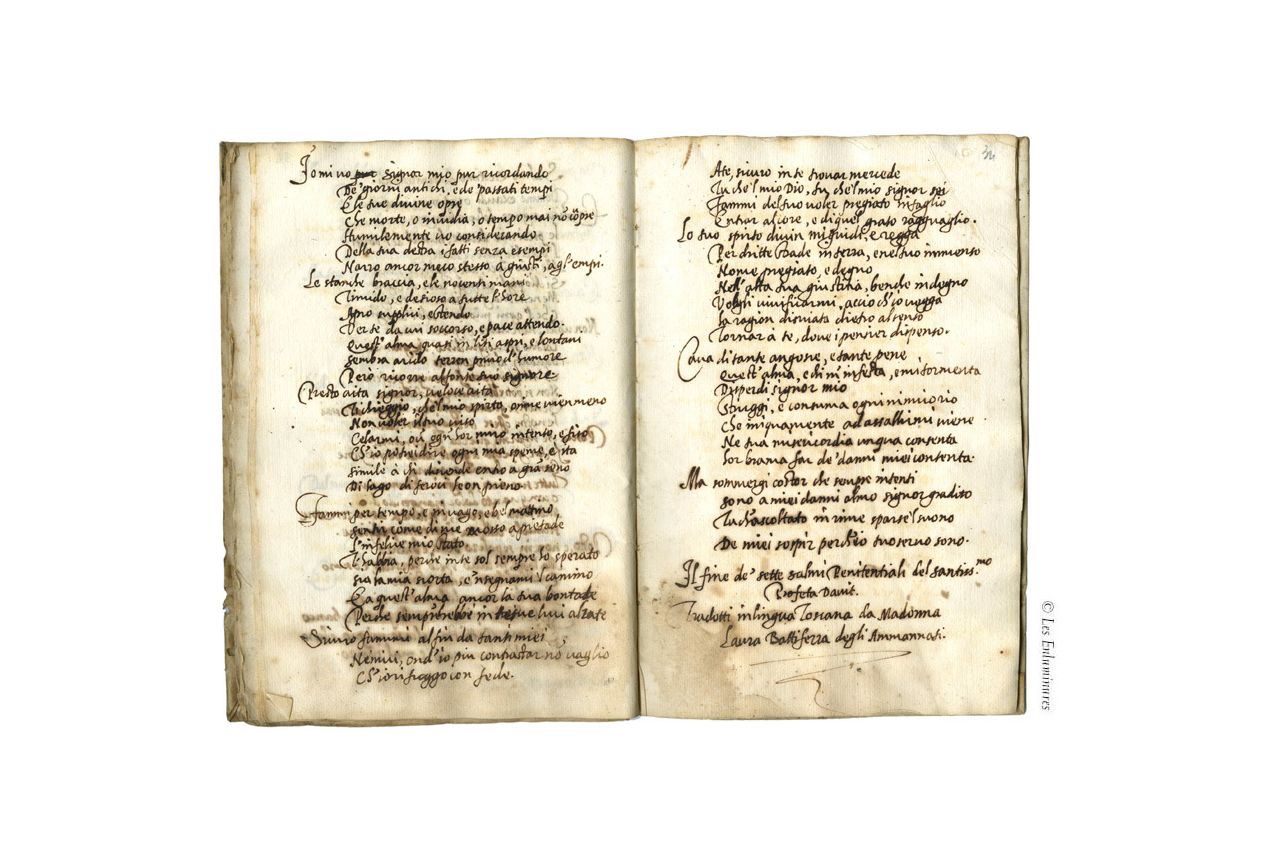 Io mi vo pur signor mio pur ricordando
De giorni antichi, e de passati tempi
E le tue divine opre
Che morte, o invidia, o tempo mai nō copre
Humilemente vo considerando
Della tua destra i fatti senza esempi
Narro ancor meco stesso a giusti, a gl'empi.
Le stanche braccia, e le non
Timido, e desioso a tutte l'hore
Apro supplici, estendo
Ver te da cui soccorso, e pace attendo.
Quest'alma quasi in liti aspri, e lontani
Sembra arido terren privo d'humore
Però ricorre al fonte suo signore.
Presto aita signor, veloce aita
Ti cheggio, che'l mio spirto, omai vien meno
Non voler il tuo viso
Celarmi, ov'ogn'hor miro intento, e fiso
Ch'io potrei dire ogni mia speme, è ita
Simile à chi discende entro a grā seno
Di lago di feroci leon pieno
Fammi per tempo, e in vago, e bel matino
Sentir come di me mosso a pietade
L'infelice mio stato
T'habbia, perche in te sol sempre ho sperato
Sia la mia scorta, e'nsegnami'l camino
E a quest'alma ancor la tua bontade
Perche sempr'hebbe in te sue luci alzate
Sicuro fammi al fin da tanti miei
Nemici, ond'io piu contrastar nō vaglio
Ch'io rifuggo con fede.
34
A te, sicuro in te trovar mercede
Tu che'l mio Dio, tu che'l mio signor sei
Fammi del tuo voler pregiato intaglio
Entrar al core, e di quel grato ragguaglio.
Lo tuo spirto divin mi guidi, e regga
Per dritte strade in terra, e nel tuo
Nome pregiato, e degno
Nell'alta tua giustitia, benche indegno
Vogli vivificarmi, acciò ch'io vegga
La ragion disviata dietro al senso
Tornar à te, dove i pensier dispenso.
Cava di tante angosce, e tante pene
Quest'alma, e di chi infesta, e mi tormenta
Disperdi signor mio
Struggi, e consuma ogni nimico rio
Che iniquamente ad assalirmi viene
Ne tua misericordia unqua consenta
Lor brama far de' danni miei contenta.
Ma sommergi costor che sempre intenti
Sono a miei danni almo signor gradito
Tu ch'ascoltato in rime sparse'l suono
De miei sospir perch'io tuo servo sono.
Il fine de' sette salmi Penitentiali del santiss.mo
Profeta Davit.
Tradotti in lingua Toscana da Madonna
Laura Battiferra degli Ammannati.
© Les Enluminures